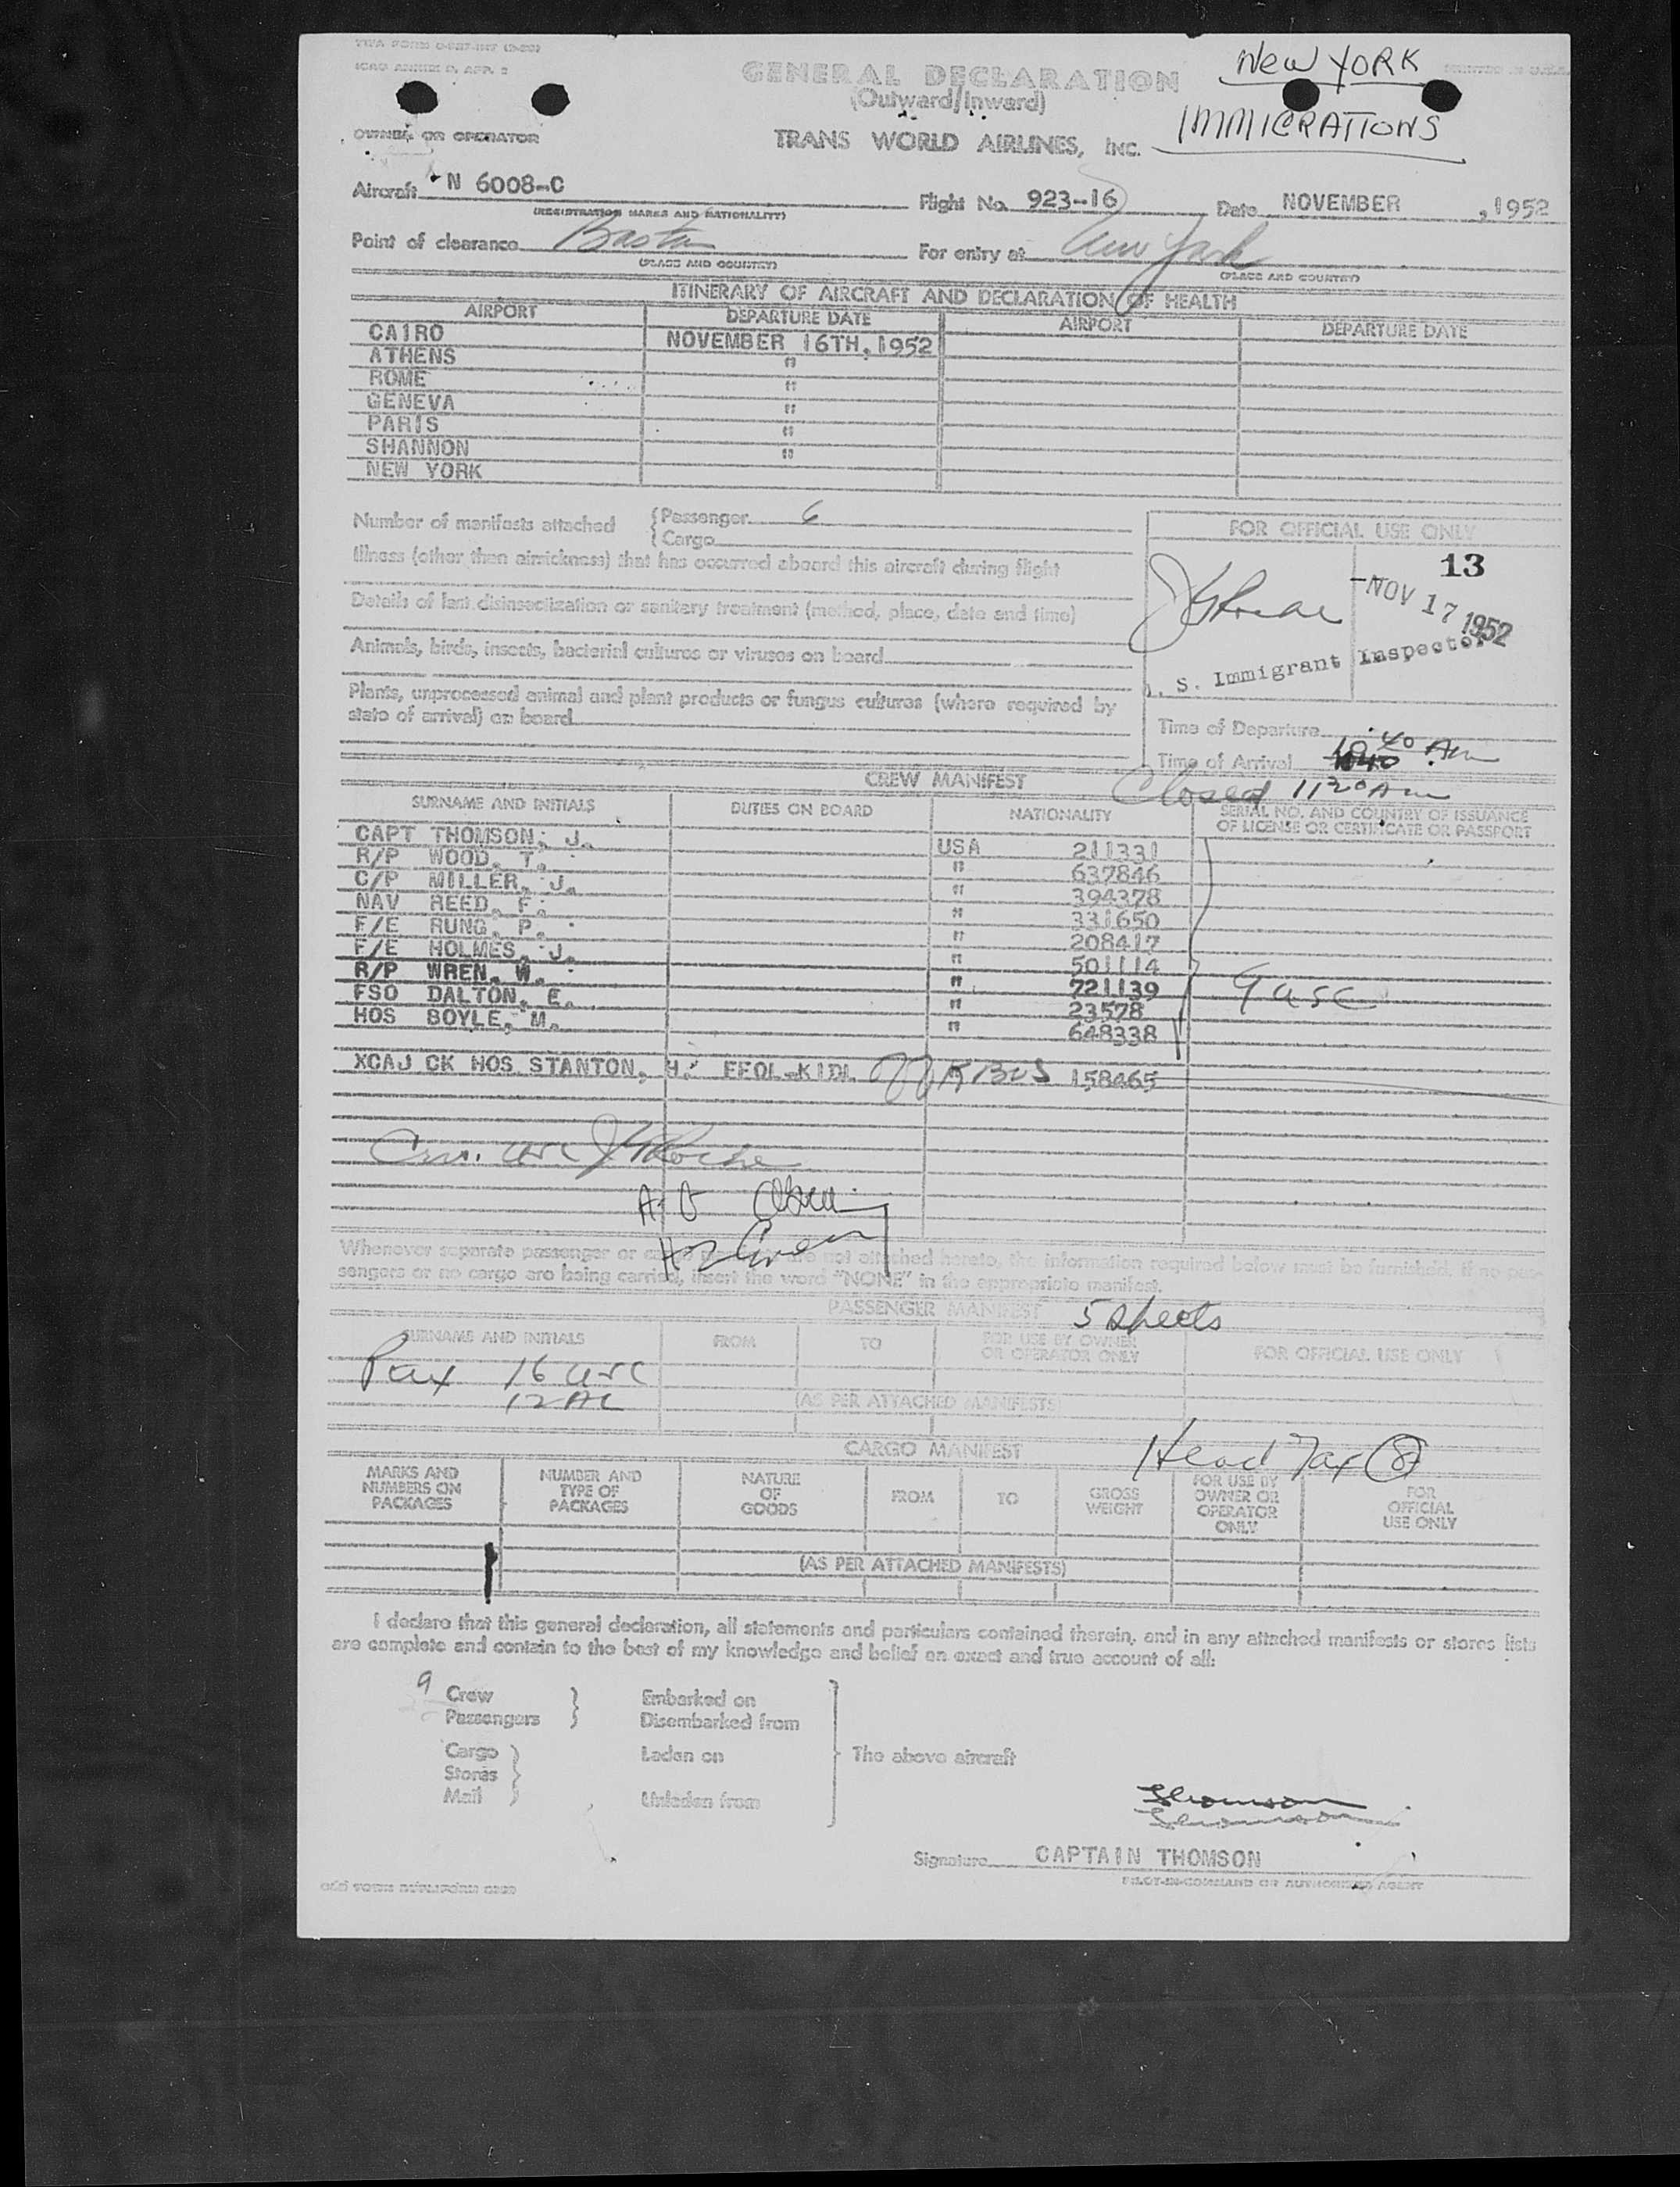 TWA FORM
ICAO ANNEX 9, APP. 2
GENERAL DECLARATION
(Outward/Inward)
New YORK
IMMIGRATIONS
PRINTED IN U.S.A.
OWNER OR OPERATOR
TRANS WORLD AIRLINES, INC.
Aircraft N 6008-C Flight No. 923-16 Date NOVEMBER , 1952
(REGISTRATION MARKS AND NATIONALITY)
Point of clearance Boston For entry at New York
(PLACE AND COUNTRY) (PLACE AND COUNTRY)
ITINERARY OF AIRCRAFT AND DECLARATION OF HEALTH
AIRPORT DEPARTURE DATE AIRPORT DEPARTURE DATE
CAIRO NOVEMBER 16TH, 1952
ATHENS "
ROME "
GENEVA "
PARIS "
SHANNON "
NEW YORK
Number of manifests attached { Passenger 6
{ Cargo
Illness (other than airsickness) that has occurred aboard this aircraft during flight
Details of last disinsectization or sanitary treatment (method, place, date and time)
Animals, birds, insects, bacterial cultures or viruses on board
Plants, unprocessed animal and plant products or fungus cultures (where required by
state of arrival) on board
FOR OFFICIAL USE ONLY
13
NOV 17 1952
S. Immigrant Inspector
Time of Departure
Time of Arrival 10 40 Am
Closed 11 20 Am
CREW MANIFEST
SURNAME AND INITIALS DUTIES ON BOARD NATIONALITY SERIAL NO. AND COUNTRY OF ISSUANCE
OF LICENSE OR CERTIFICATE OR PASSPORT
CAPT THOMSON, J. USA 211331
R/P WOOD, T. " 637846
C/P MILLER, J. " 394378
NAV REED, F. " 331650
F/E RUNG, P. " 208417
F/E HOLMES, J. " 501114
R/P WREN, W. " 721139
FSO DALTON, E. " 23578
HOS BOYLE, M. " 648338
9 usc
XCAJ CK HOS STANTON, H. EFOL-KIDL 158465
Whenever separate passenger or cargo manifests are not attached hereto, the information required below must be furnished. If no pas-
sengers or no cargo are being carried, insert the word "NONE" in the appropriate manifest.
PASSENGER MANIFEST 5 sheets
SURNAME AND INITIALS FROM TO FOR USE BY OWNER
OR OPERATOR ONLY FOR OFFICIAL USE ONLY
Pax 16 usc
12 AL
(AS PER ATTACHED MANIFESTS)
CARGO MANIFEST Head Tax 8
MARKS AND
NUMBERS ON
PACKAGES
NUMBER AND
TYPE OF
PACKAGES
NATURE
OF
GOODS
FROM
TO
GROSS
WEIGHT
FOR USE BY
OWNER OR
OPERATOR
ONLY
FOR
OFFICIAL
USE ONLY
(AS PER ATTACHED MANIFESTS)
I declare that this general declaration, all statements and particulars contained therein, and in any attached manifests or stores lists
are complete and contain to the best of my knowledge and belief an exact and true account of all:
9 Crew } Embarked on
Passengers } Disembarked from
Cargo } Laden on The above aircraft
Stores
Mail } Unladen from
Thomson
Thomson
Signature CAPTAIN THOMSON
PILOT-IN-COMMAND OR AUTHORIZED AGENT